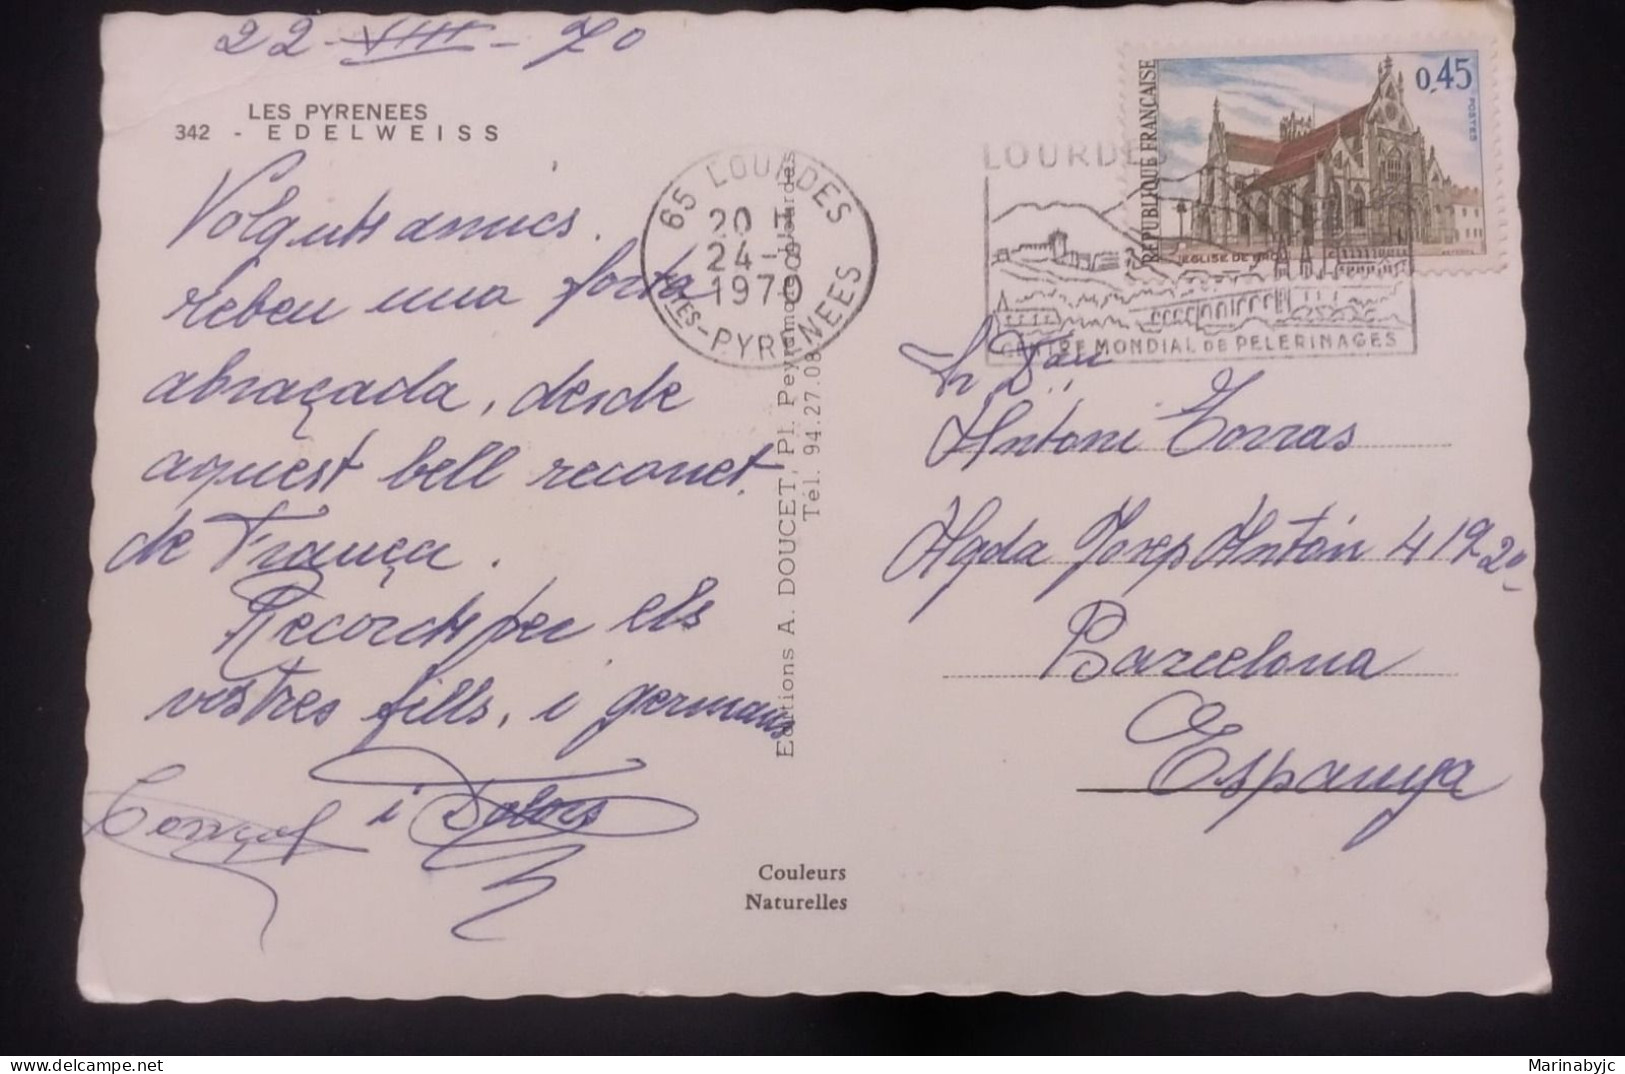 22-VIII-70
LES PYRENEES
342 - EDELWEISS
Volguts amics.
rebeu una forta
abraçada, desde
aquest bell reconet
de França.
Records per els
vostres fills, i germans
i Dolors
65 LOURDES
20 H
24-8
1970
PYRENEES
Editions A. DOUCET, Pl. Peyramale Lourdes
Tél. 94.27.08
Couleurs
Naturelles
LOURDES
CENTRE MONDIAL DE PELERINAGES
REPUBLIQUE FRANÇAISE
0,45
POSTES
EGLISE DE BROU
Antoni Torras
Agda Josep Antón 419 2º
Barcelona
Espanya
Marinabyjc